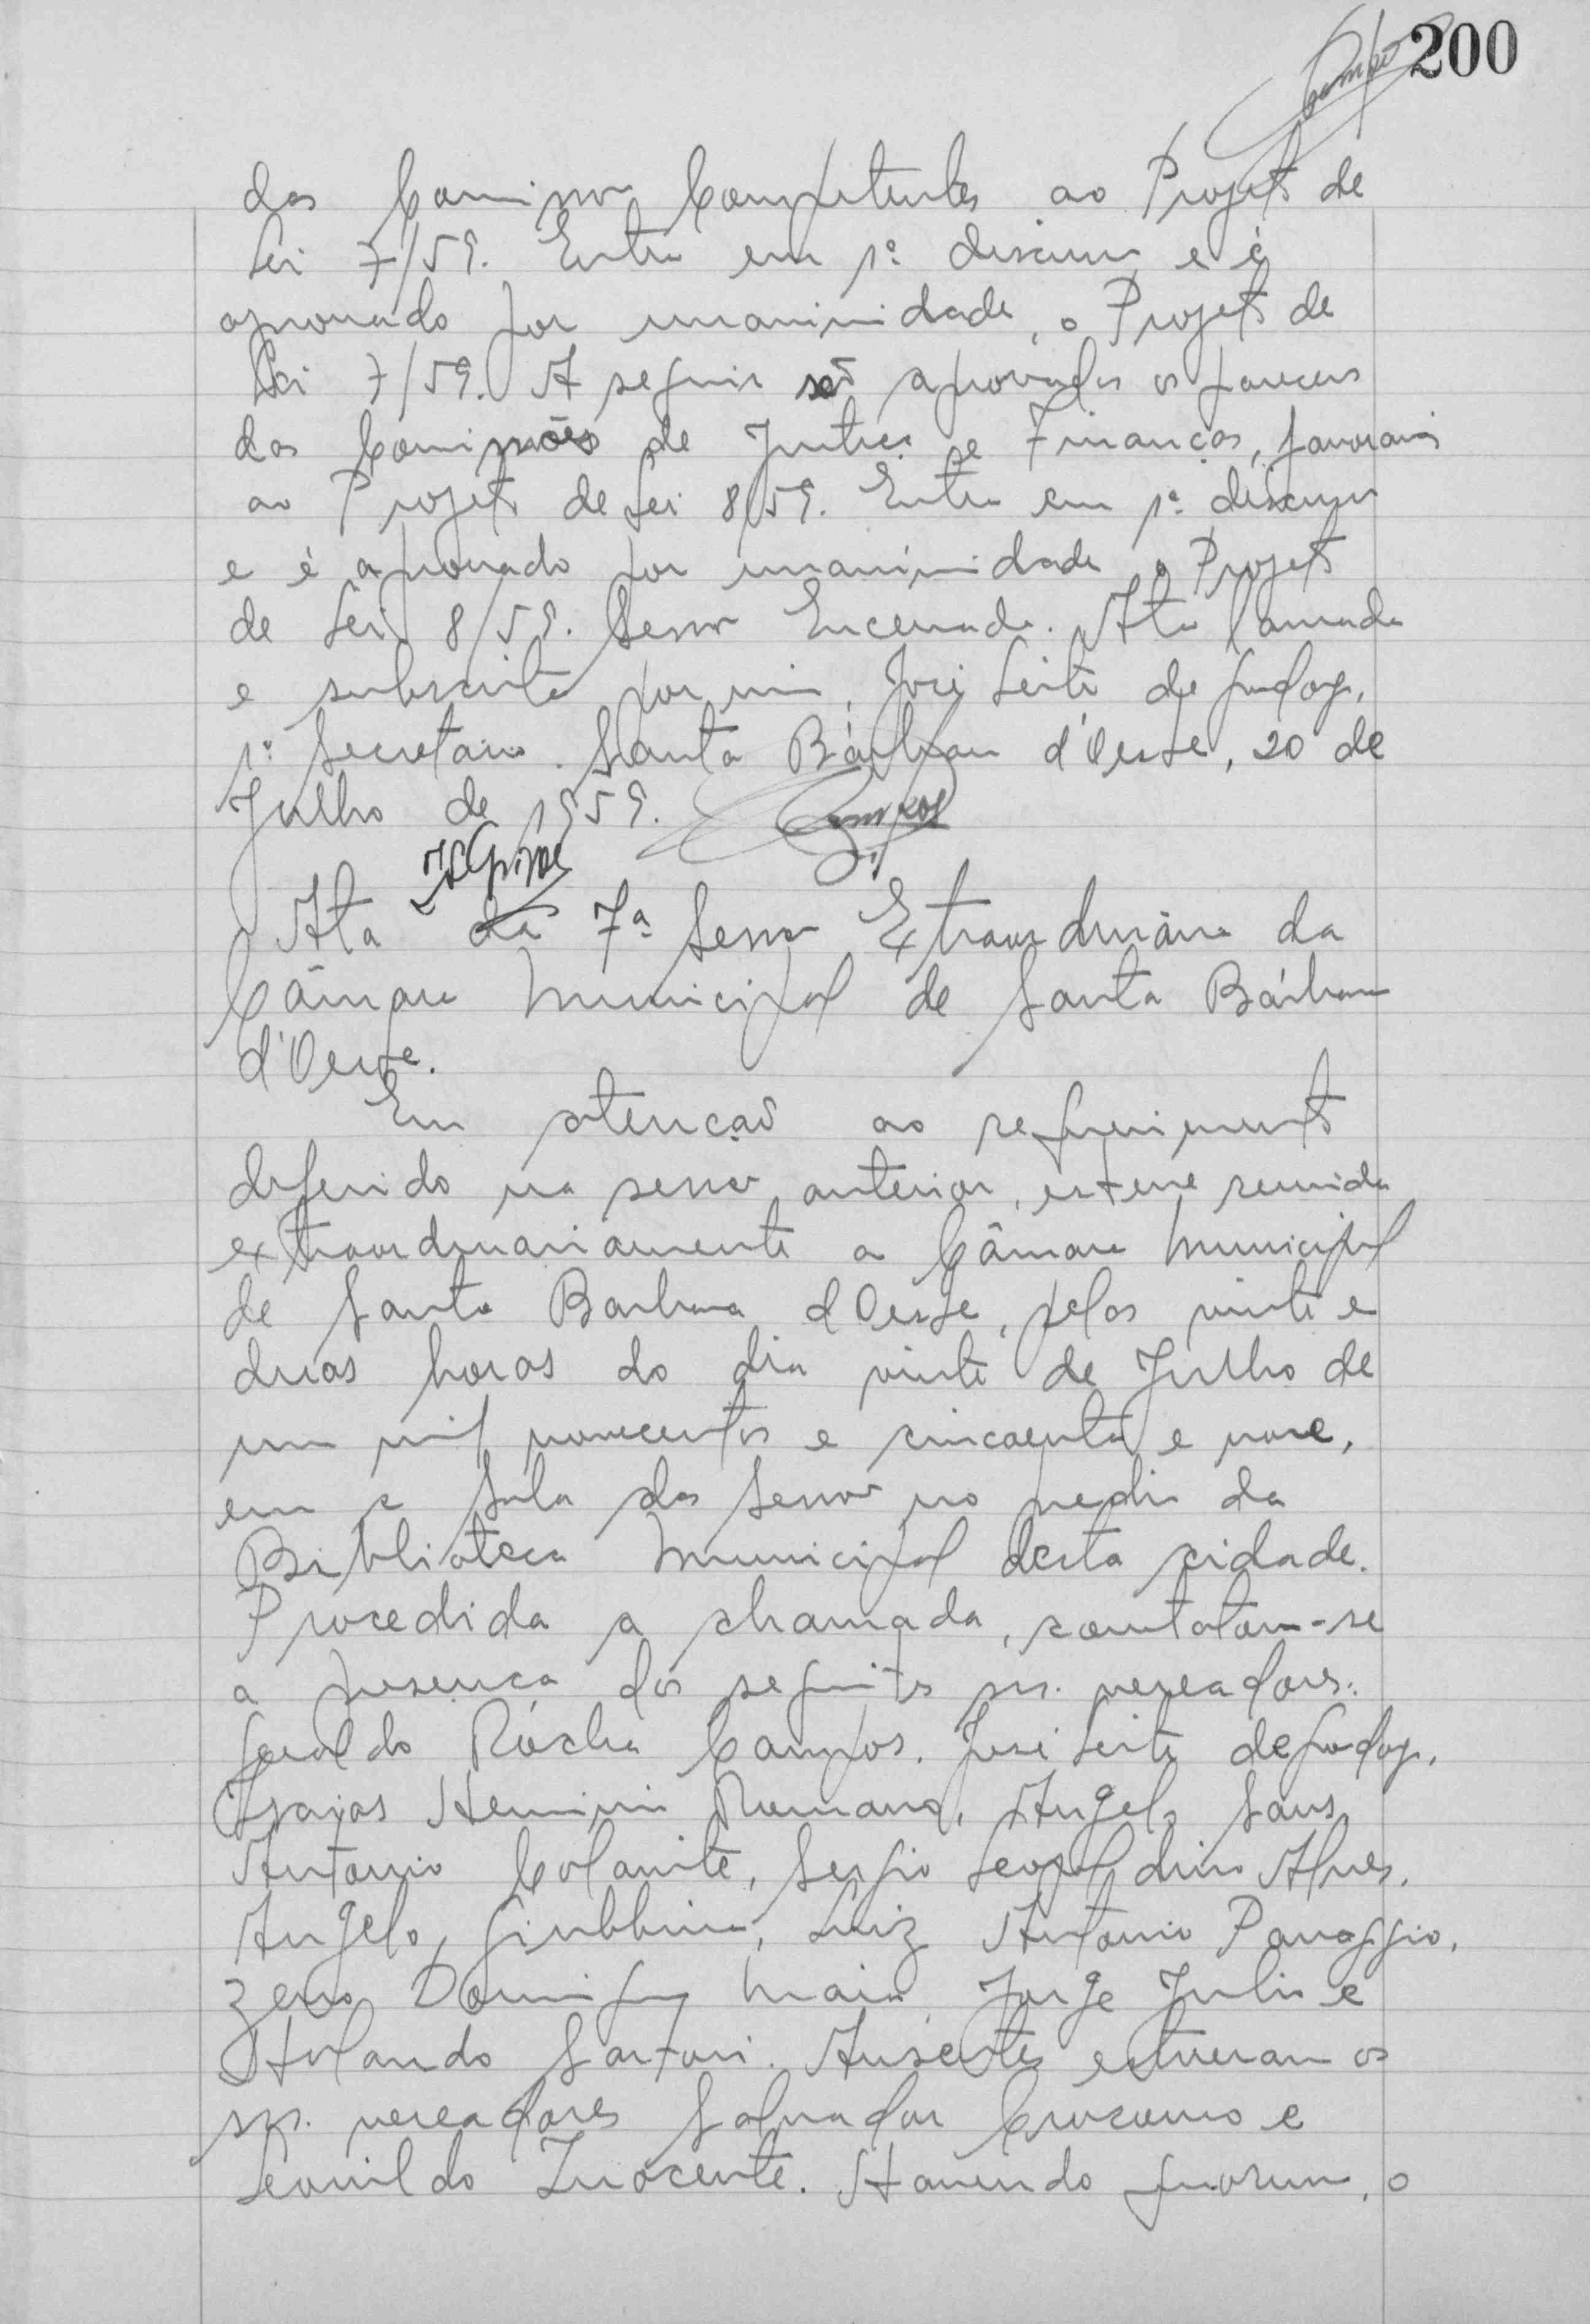 200
das Comissões Competentes ao Projeto de
Lei 7/59. Entra em 1ª discussão e é
aprovado por unanimidade, o Projeto de
Lei 7/59. A seguir são aprovados os pareceres
das Comissões de Justiça e Finanças, favoraveis
ao Projeto de Lei 8/59. Entra em 1ª discussão
e é aprovado por unanimidade o Projeto
de Lei 8/59. Sessão Encerrada. Ata lavrada
e subscrita por mim, José Leite de Godoy,
1º Secretario. Santa Bárbara d'Oeste, 20 de
Julho de 1959. Campos
Ata da 7ª Sessão Extraordinária da
Câmara Municipal de Santa Bárbara
d'Oeste.
Em atenção ao requerimento
deferido na sessão anterior, esteve reunida
extraordinariamente a Câmara Municipal
de Santa Barbara d'Oeste, pelas vinte e
duas horas do dia vinte de Julho de
um mil novecentos e cincoenta e nove,
em a Sala das Sessões no predio da
Biblioteca Municipal desta cidade.
Procedida a chamada, constatou-se
a presença dos seguintes srs. vereadores:
Geraldo Rocha Campos, José Leite de Godoy,
Isaias Herminio Romano, Angelo Sans,
Antonio Colanite, Sergio Leopoldino Alves,
Angelo Giubbina, Luiz Antonio Panaggio,
Zeno Domingos Maia, Jorge Julio e
Holando Sartori. Ausentes estiveram os
srs. vereadores Salvador Crozomo e
Leonildo Inocente. Havendo quorum, o